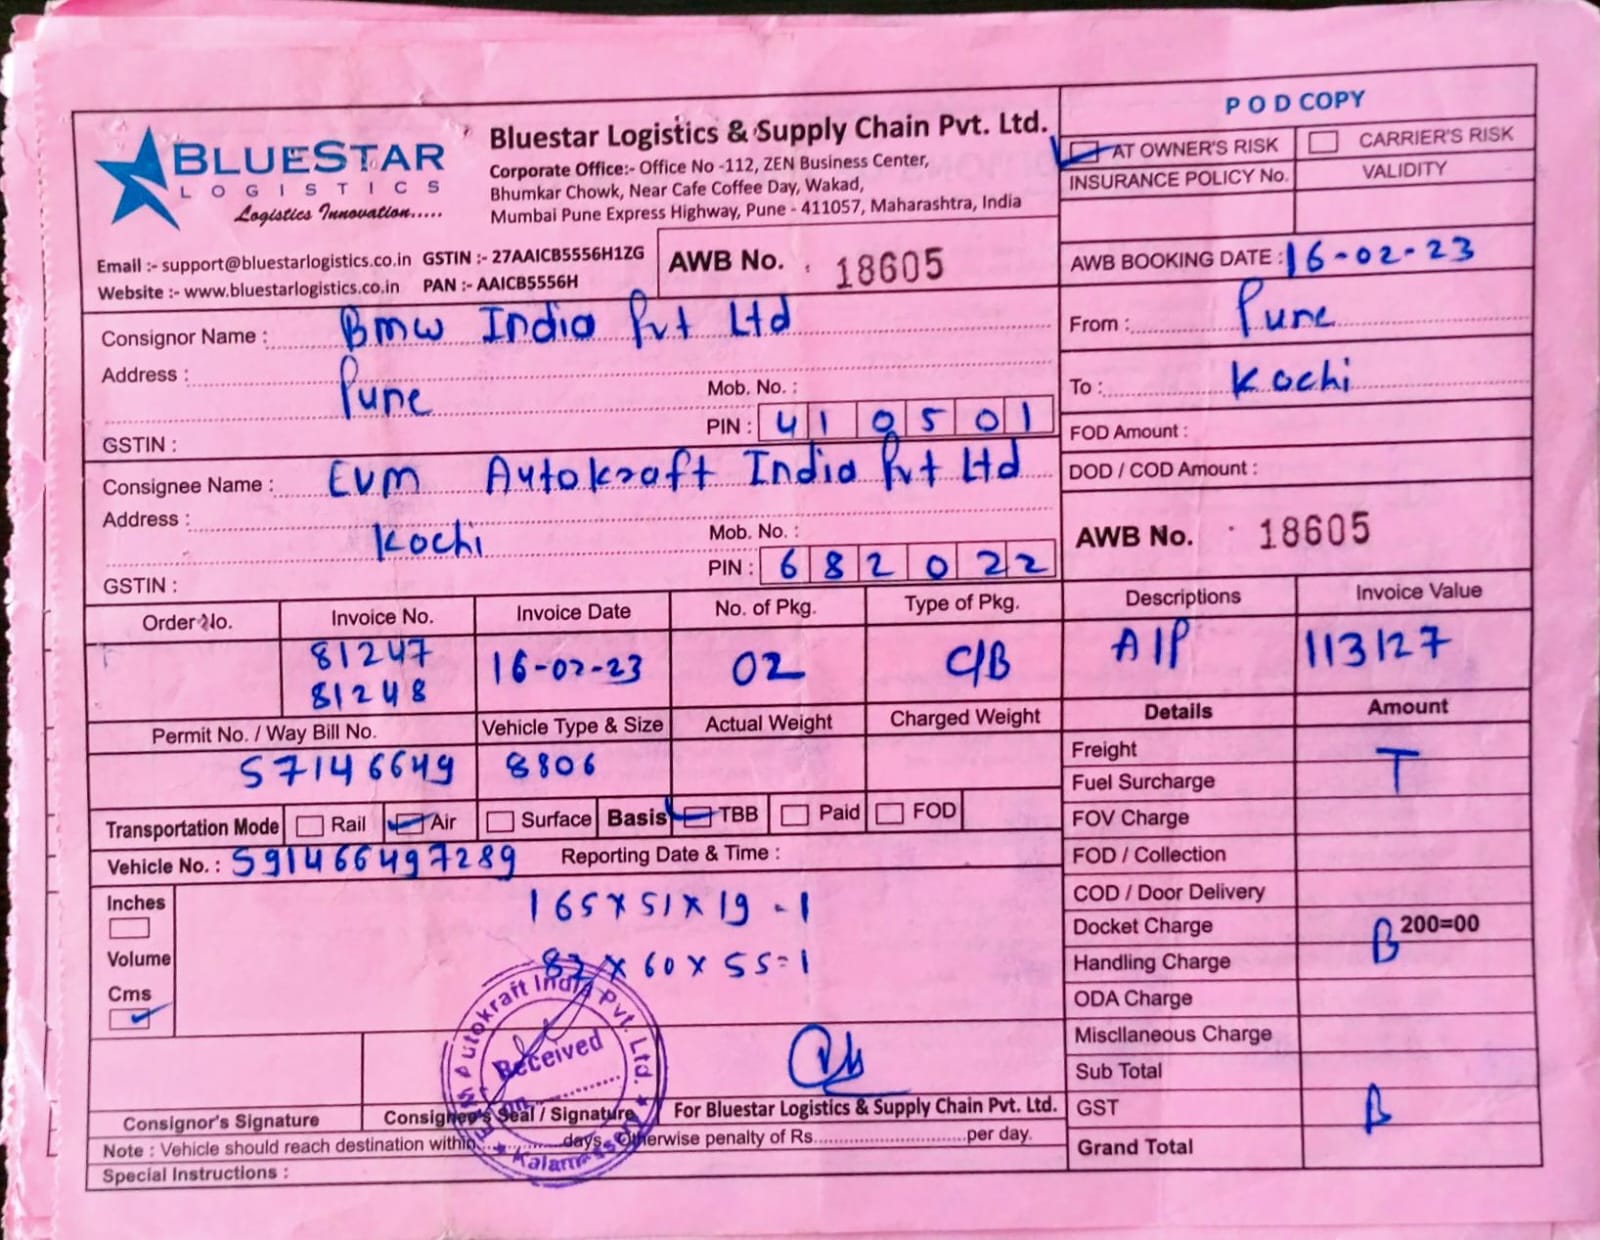 POD COPY
BLUESTAR
LOGISTICS
Logistics Innovation.....
Bluestar Logistics & Supply Chain Pvt. Ltd.
Corporate Office:- Office No -112, ZEN Business Center,
Bhumkar Chowk, Near Cafe Coffee Day, Wakad,
Mumbai Pune Express Highway, Pune - 411057, Maharashtra, India
AT OWNER'S RISK CARRIER'S RISK
INSURANCE POLICY No. VALIDITY
Email :- support@bluestarlogistics.co.in GSTIN :- 27AAICB5556H1ZG
Website :- www.bluestarlogistics.co.in PAN :- AAICB5556H
AWB No. 18605
AWB BOOKING DATE : 16-02-23
Consignor Name : Bmw India Pvt Ltd
From : Pune
Address : Pune
Mob. No. :
To : Kochi
PIN : 410501
GSTIN :
FOD Amount :
Consignee Name : EVM Autokraft India Pvt Ltd
DOD / COD Amount :
Address : Kochi
Mob. No. :
AWB No. 18605
PIN : 682022
GSTIN :
Order No. Invoice No. Invoice Date No. of Pkg. Type of Pkg. Descriptions Invoice Value
81247
81248
16-02-23 02 C/B A/P 113127
Permit No. / Way Bill No. Vehicle Type & Size Actual Weight Charged Weight Details Amount
57146649 8806
Freight T
Fuel Surcharge
Transportation Mode Rail Air Surface Basis TBB Paid FOD
FOV Charge
Vehicle No. : 591466497289 Reporting Date & Time :
FOD / Collection
Inches
165 x 51 x 19 - 1
COD / Door Delivery
Docket Charge 200=00
Volume
82 x 60 x 55 = 1
Handling Charge
Cms
ODA Charge
Miscllaneous Charge
Sub Total
EVM Autokraft India Pvt. Ltd.
Received
on
Kalamassery
Consignor's Signature Consignee's Seal / Signature For Bluestar Logistics & Supply Chain Pvt. Ltd.
GST
Note : Vehicle should reach destination within..............days. Otherwise penalty of Rs..............................per day.
Grand Total
Special Instructions :